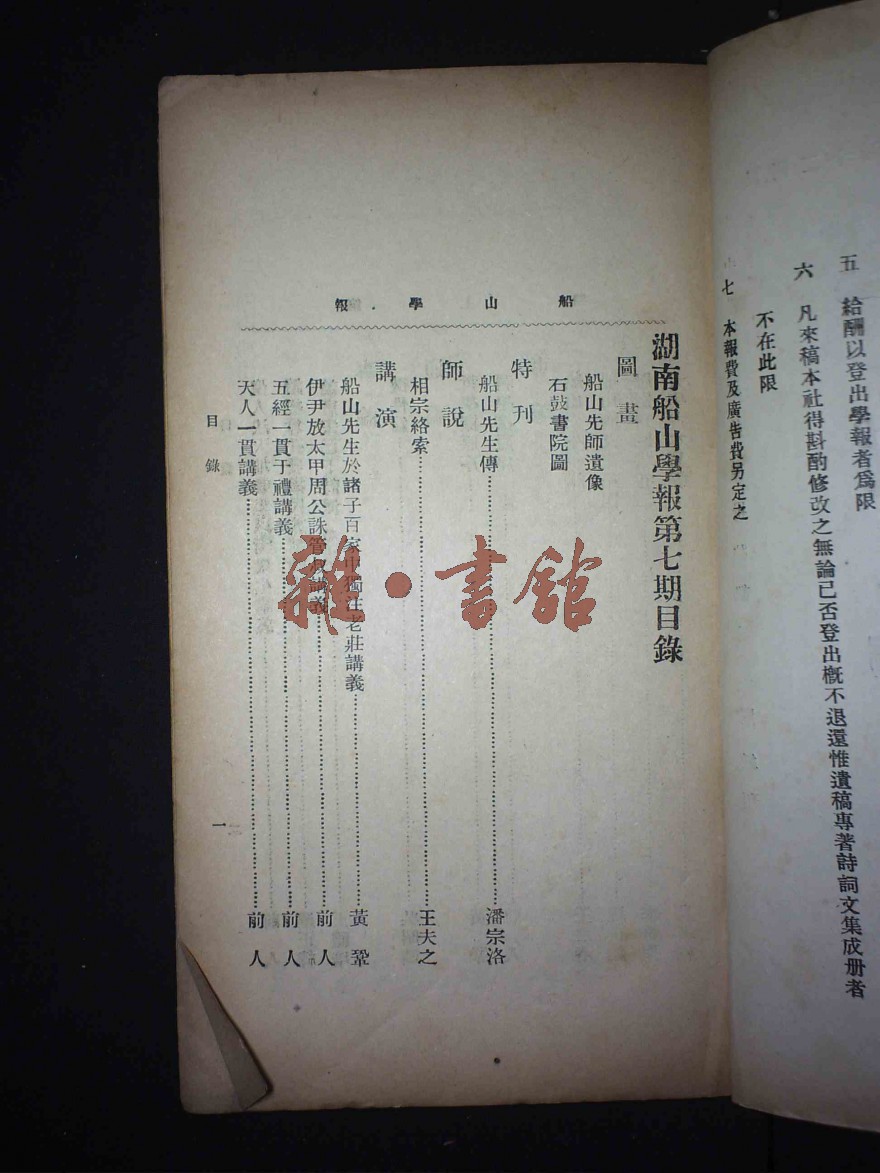 五　給酬以登出學報者爲限
六　凡來稿本社得斟酌修改之無論已否登出概不退還惟遺稿專著詩詞文集成册者
不在此限
七　本報費及廣告費另定之
船山學報
湖南船山學報第七期目錄
圖畫
船山先師遺像
石鼓書院圖
特刊
船山先生傳 潘宗洛
師說
相宗絡索 王夫之
講演
船山先生於諸子百家中獨注老莊講義 黃鞏
伊尹放太甲周公誅管叔講義 前人
五經一貫于禮講義 前人
天人一貫講義 前人
目錄
一
雜·書館